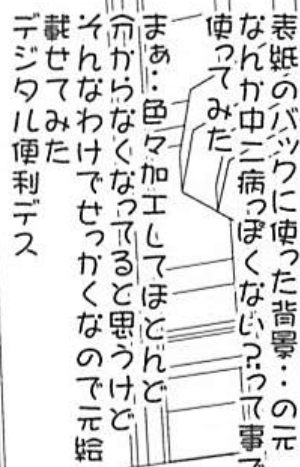 表紙のバックに使った背景‥の元
なんか中二病っぽくない？って事で
使ってみた
まぁ‥色々加工してほとんど
分からなくなってると思うけど
そんなわけでせっかくなので元絵
載せてみた
デジタル便利デス